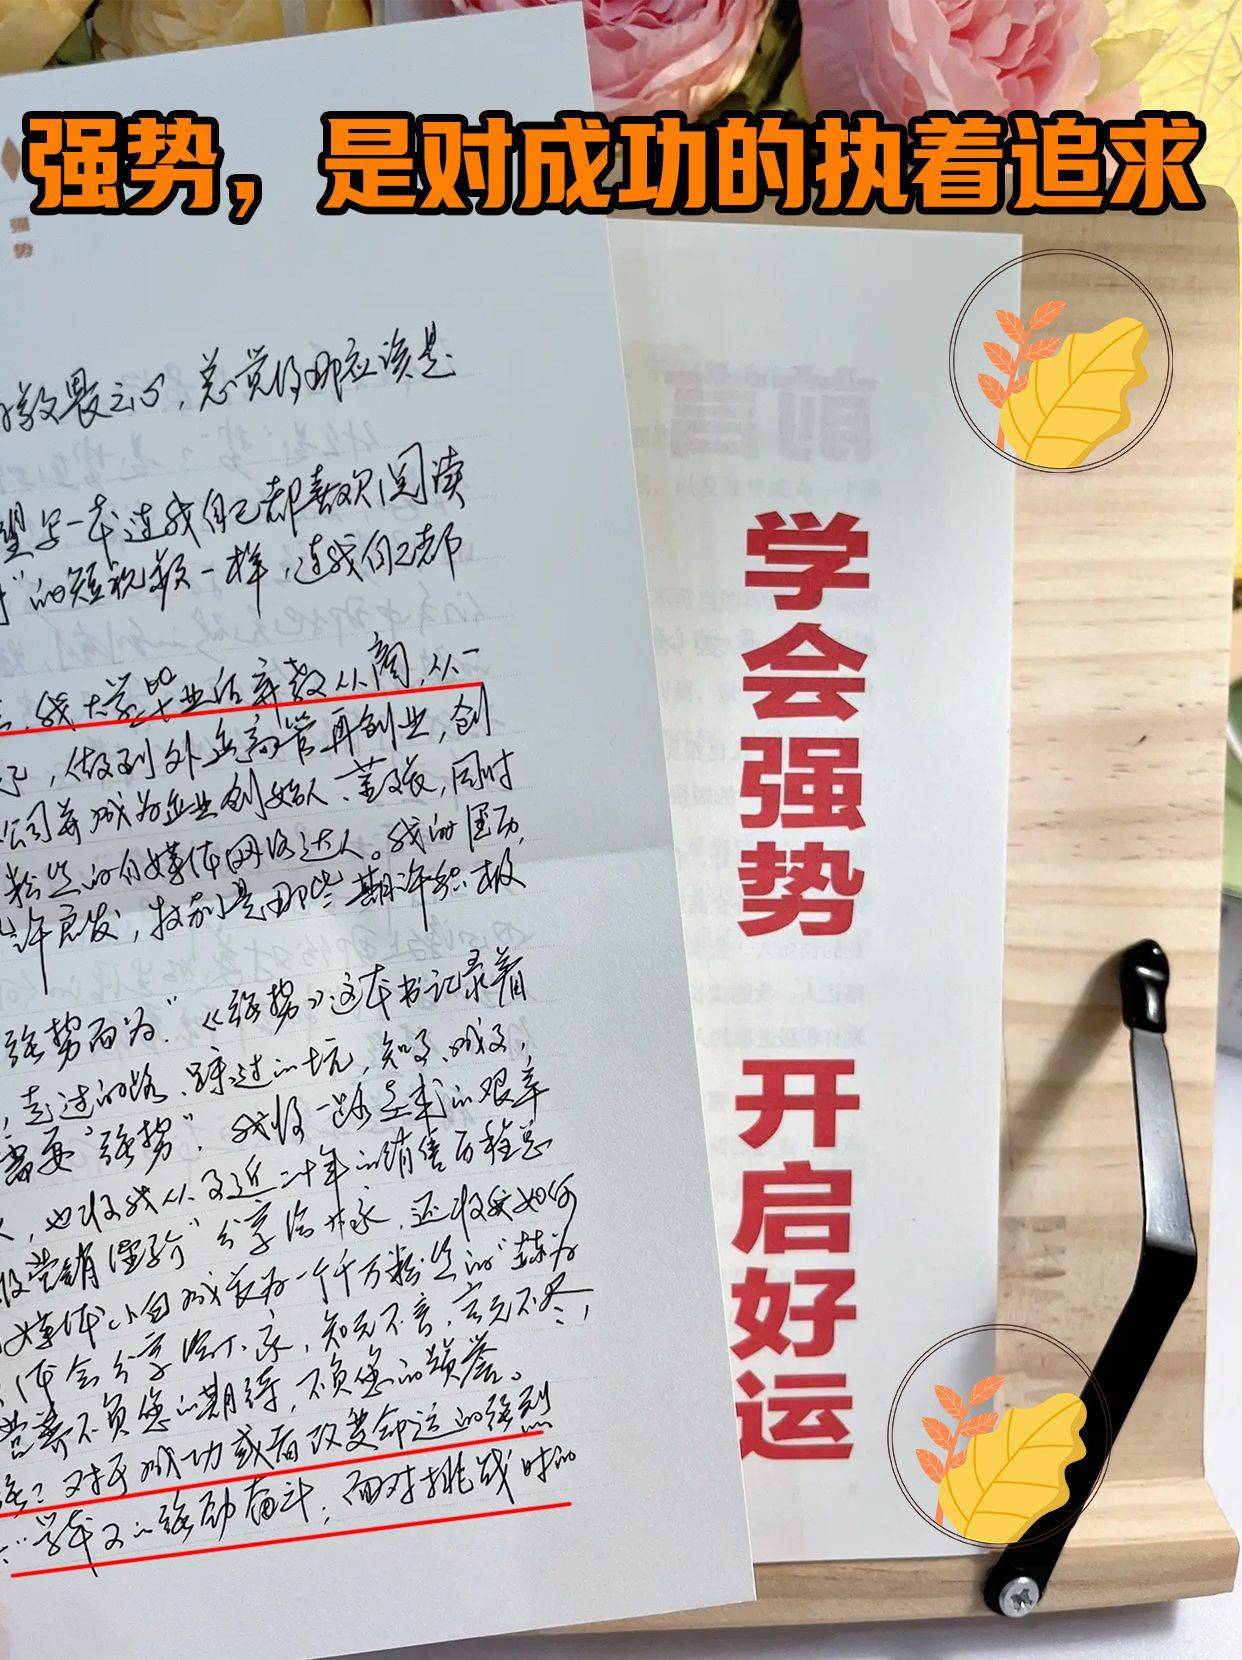 强势，是对成功的执着追求
强势
敬畏之心，总觉得那应该是
望写一本连我自己都喜欢阅读
的短视频一样，连我自己都
我大学毕业后弃教从商，从一
，做到外企高管再创业，创
公司并成为企业创始人、董事长，同时
粉丝的自媒体网络达人。我的经历，
许启发，特别是那些期许积极
强势而为"《强势》这本书记录着
，走过的路、踩过的坑，知了、成了，
需要"强势"。我将一路走来的艰辛
，也将我从了近二十年的销售历程总
营销经验"分享给大家，还将我如何
媒体小白成长为一个千万粉丝的
会分享给大家，知无不言，言无不尽，
不负您的期待，不负您的赞誉。
对于成功或者改变命运的强烈
的强劲奋斗；面对挑战时的
前言
学会强势 开启好运